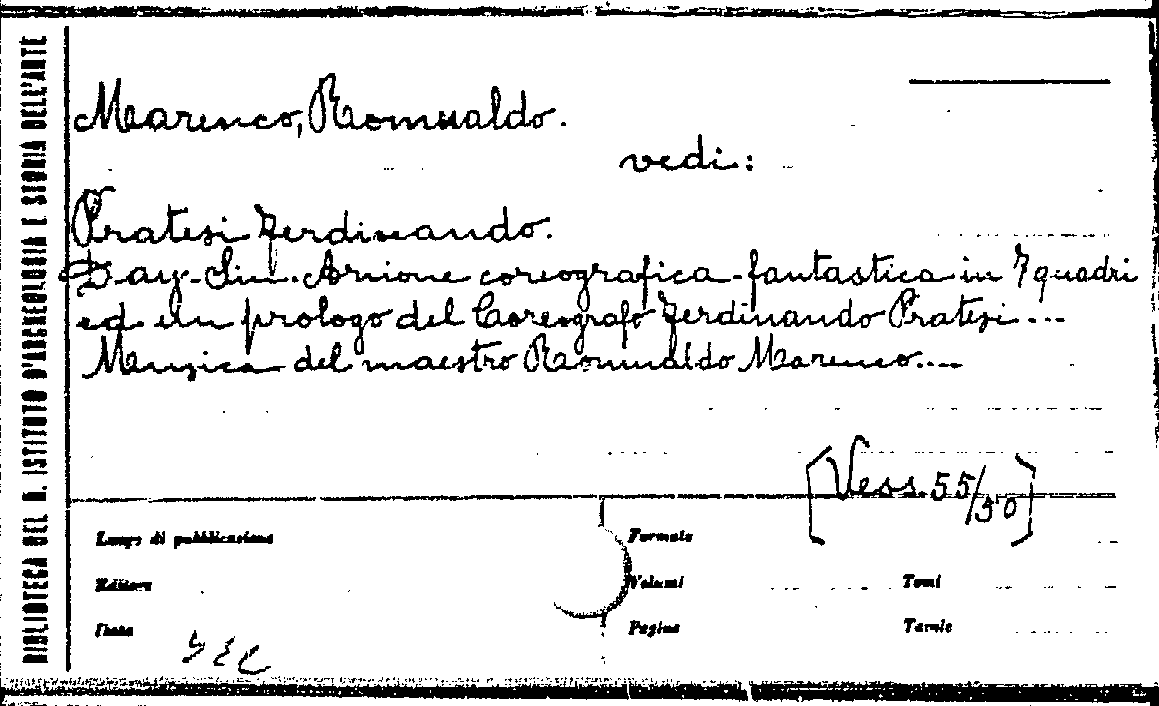 BIBLIOTECA DEL R. ISTITUTO D'ARCHEOLOGIA E STORIA DELL'ARTE
Marenco, Romualdo.
vedi:
Pratesi Ferdinando.
Day-Sin. Azione coreografica-fantastica in 7 quadri
ed un prologo del Coreografo Ferdinando Pratesi....
Musica del maestro Romualdo Marenco....
[Vess. 55/50]
Luogo di pubblicazione
Formato
Editore
Volumi
Tomi
Data
Pagine
Tavole